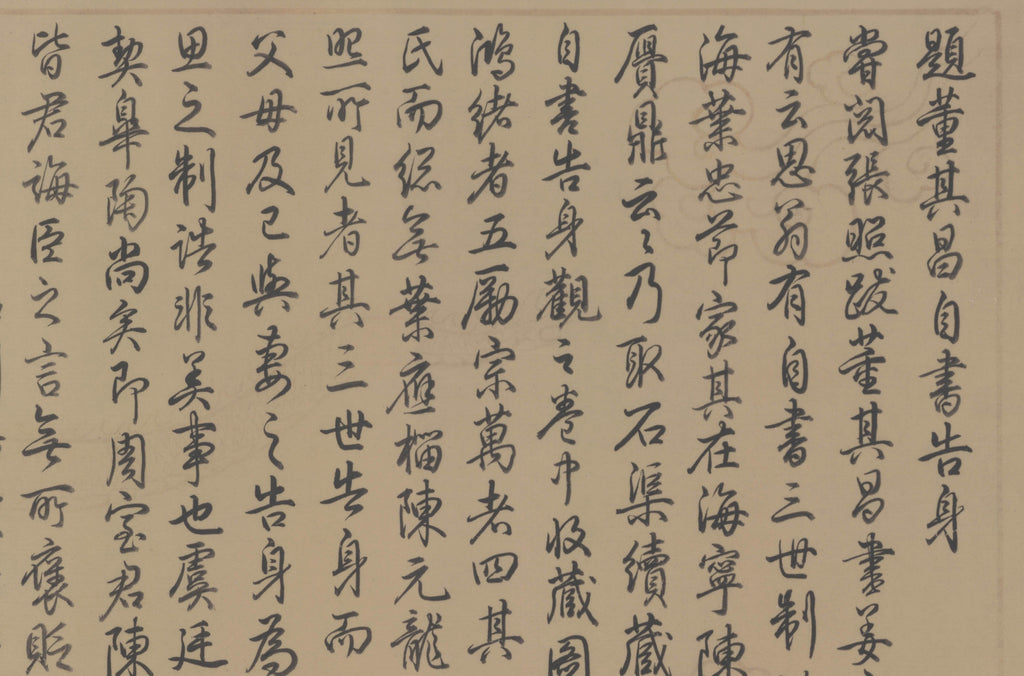 題董其昌自書告身
嘗閱張照跋董其昌書姜
有云思翁有自書三世制
海葉忠節家其在海寧陳
贗鼎云云乃取石渠續藏
自書告身觀之卷中收藏圖
鴻緒者五勵宗萬者四其
氏而總無葉應榴陳元龍
照所見者其三世告身而
父母及已與妻之告身為
思之制誥非美事也虞廷
契皐陶尚矣即周室君陳
皆君誨臣之言無所褒貶